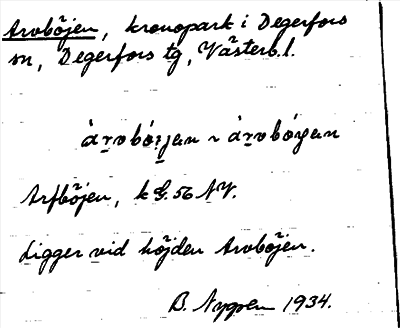 Arvböjen, kronopark i Degerfors
sn, Degerfors tg, Västerb. l.
àrvbö́jan ~ àrvbö́jan
Arfböjen, k G. 56 NV.
Ligger vid höjden Arvböjen.
B. Nygren 1934.